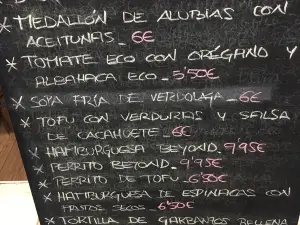 * MEDALLÓN DE ALUBIAS CON
ACEITUNAS_6€
* TOMATE ECO CON ORÉGANO Y
ALBAHACA ECO_5'50€
* SOYA FRÍA DE VERDOLAGA_6€
* TOFU CON VERDURAS Y SALSA
DE CACAHUETE_6€
* HAMBURGUESA BEYOND_9'95€
* PERRITO BEYOND_9'95€
* PERRITO DE TOFU_6'50€
* HAMBURGUESA DE ESPINACAS CON
FRUTOS SECOS_6'50€
* TORTILLA DE GARBANZOS RELLENA